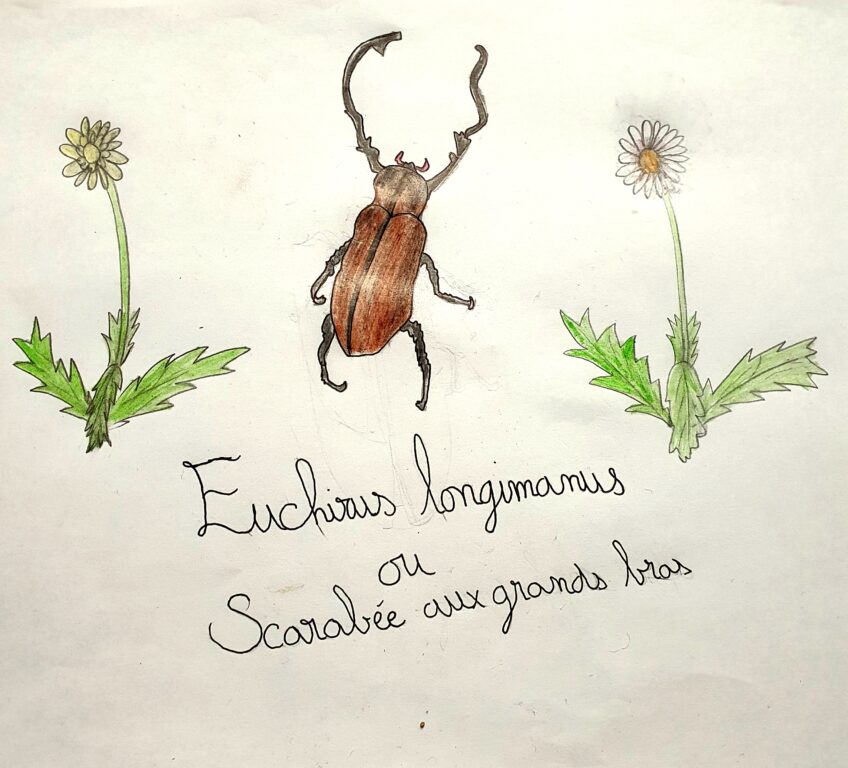 Euchirus longimanus
ou
Scarabée aux grands bras